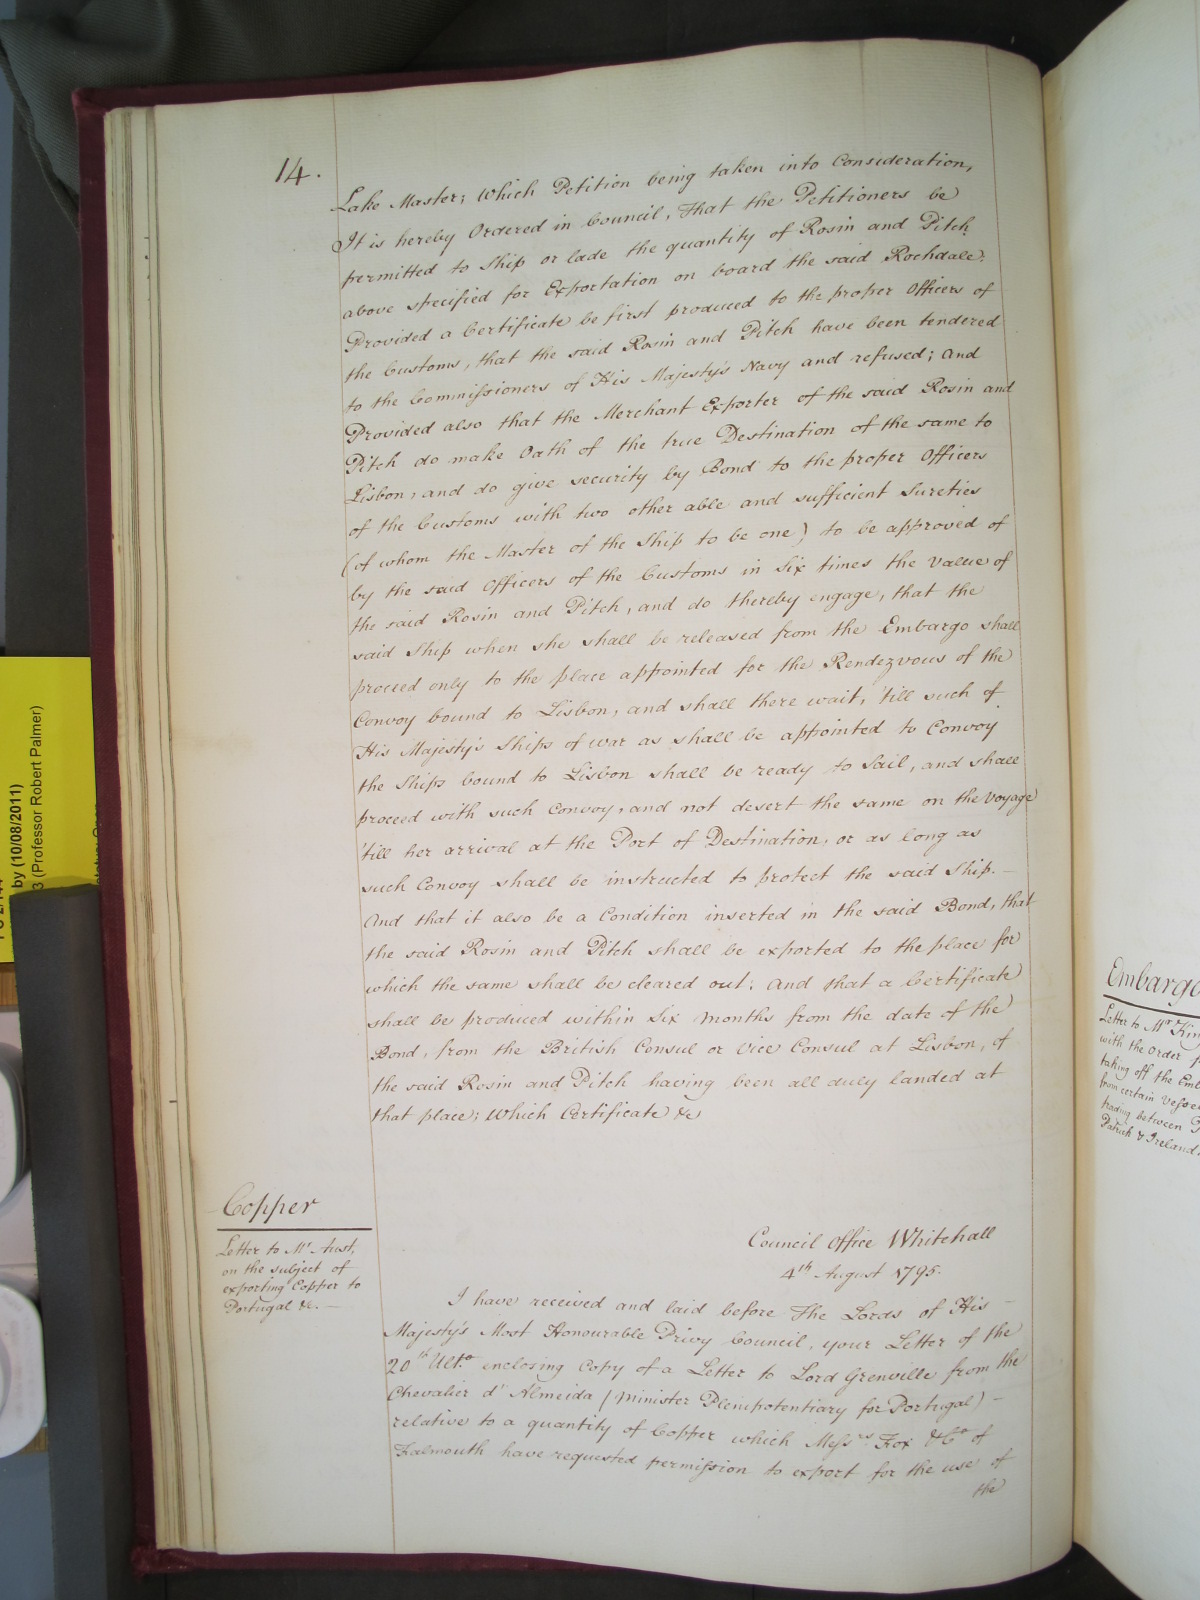 14.
Lake Master; Which Petition being taken into Consideration,
It is hereby Ordered in Council, That the Petitioners be
permitted to Ship or lade the quantity of Rosin and Pitch
above specified for Exportation on board the said Rochdale:
Provided a Certificate be first produced to the proper Officers of
the Customs, that the said Rosin and Pitch have been tendered
to the Commissioners of His Majesty's Navy and refused; And
Provided also that the Merchant Exporter of the said Rosin and
Pitch do make Oath of the true Destination of the same to
Lisbon, and do give security by Bond to the proper Officers
of the Customs with two other able and sufficient Sureties
(of whom the Master of the Ship to be one) to be approved of
by the said Officers of the Customs in Six times the Value of
the said Rosin and Pitch, and do thereby engage, that the
said Ship when she shall be released from the Embargo shall
proceed only to the place appointed for the Rendezvous of the
Convoy bound to Lisbon, and shall there wait, 'till such of
His Majesty's Ships of War as shall be appointed to Convoy
the Ships bound to Lisbon shall be ready to Sail, and shall
proceed with such Convoy, and not desert the same on the Voyage
'till her arrival at the Port of Destination, or as long as
such Convoy shall be instructed to protect the said Ship. —
And that it also be a Condition inserted in the said Bond, that
the said Rosin and Pitch shall be exported to the place for
which the same shall be cleared out; And that a Certificate
shall be produced within Six Months from the date of the
Bond, from the British Consul or Vice Consul at Lisbon, of
the said Rosin and Pitch having been all duly landed at
that place; Which Certificate &c
Copper
Letter to Mr Aust,
on the subject of
exporting Copper to
Portugal &c. —
Council Office Whitehall
4th August 1795.
I have received and laid before The Lords of His —
Majesty's Most Honourable Privy Council, your Letter of the
20th Ulto. enclosing Copy of a Letter to Lord Grenville from the
Chevalier d'Almeida (Minister Plenipotentiary for Portugal) —
relative to a quantity of Copper which Messrs. Fox & Co of
Falmouth have requested permission to export for the use of
the
Embargo
Letter to Mr King
with the Order
taking off the Emb
from certain Vessel
trading between
Patrick & Ireland.
by (10/08/2011)
3 (Professor Robert Palmer)